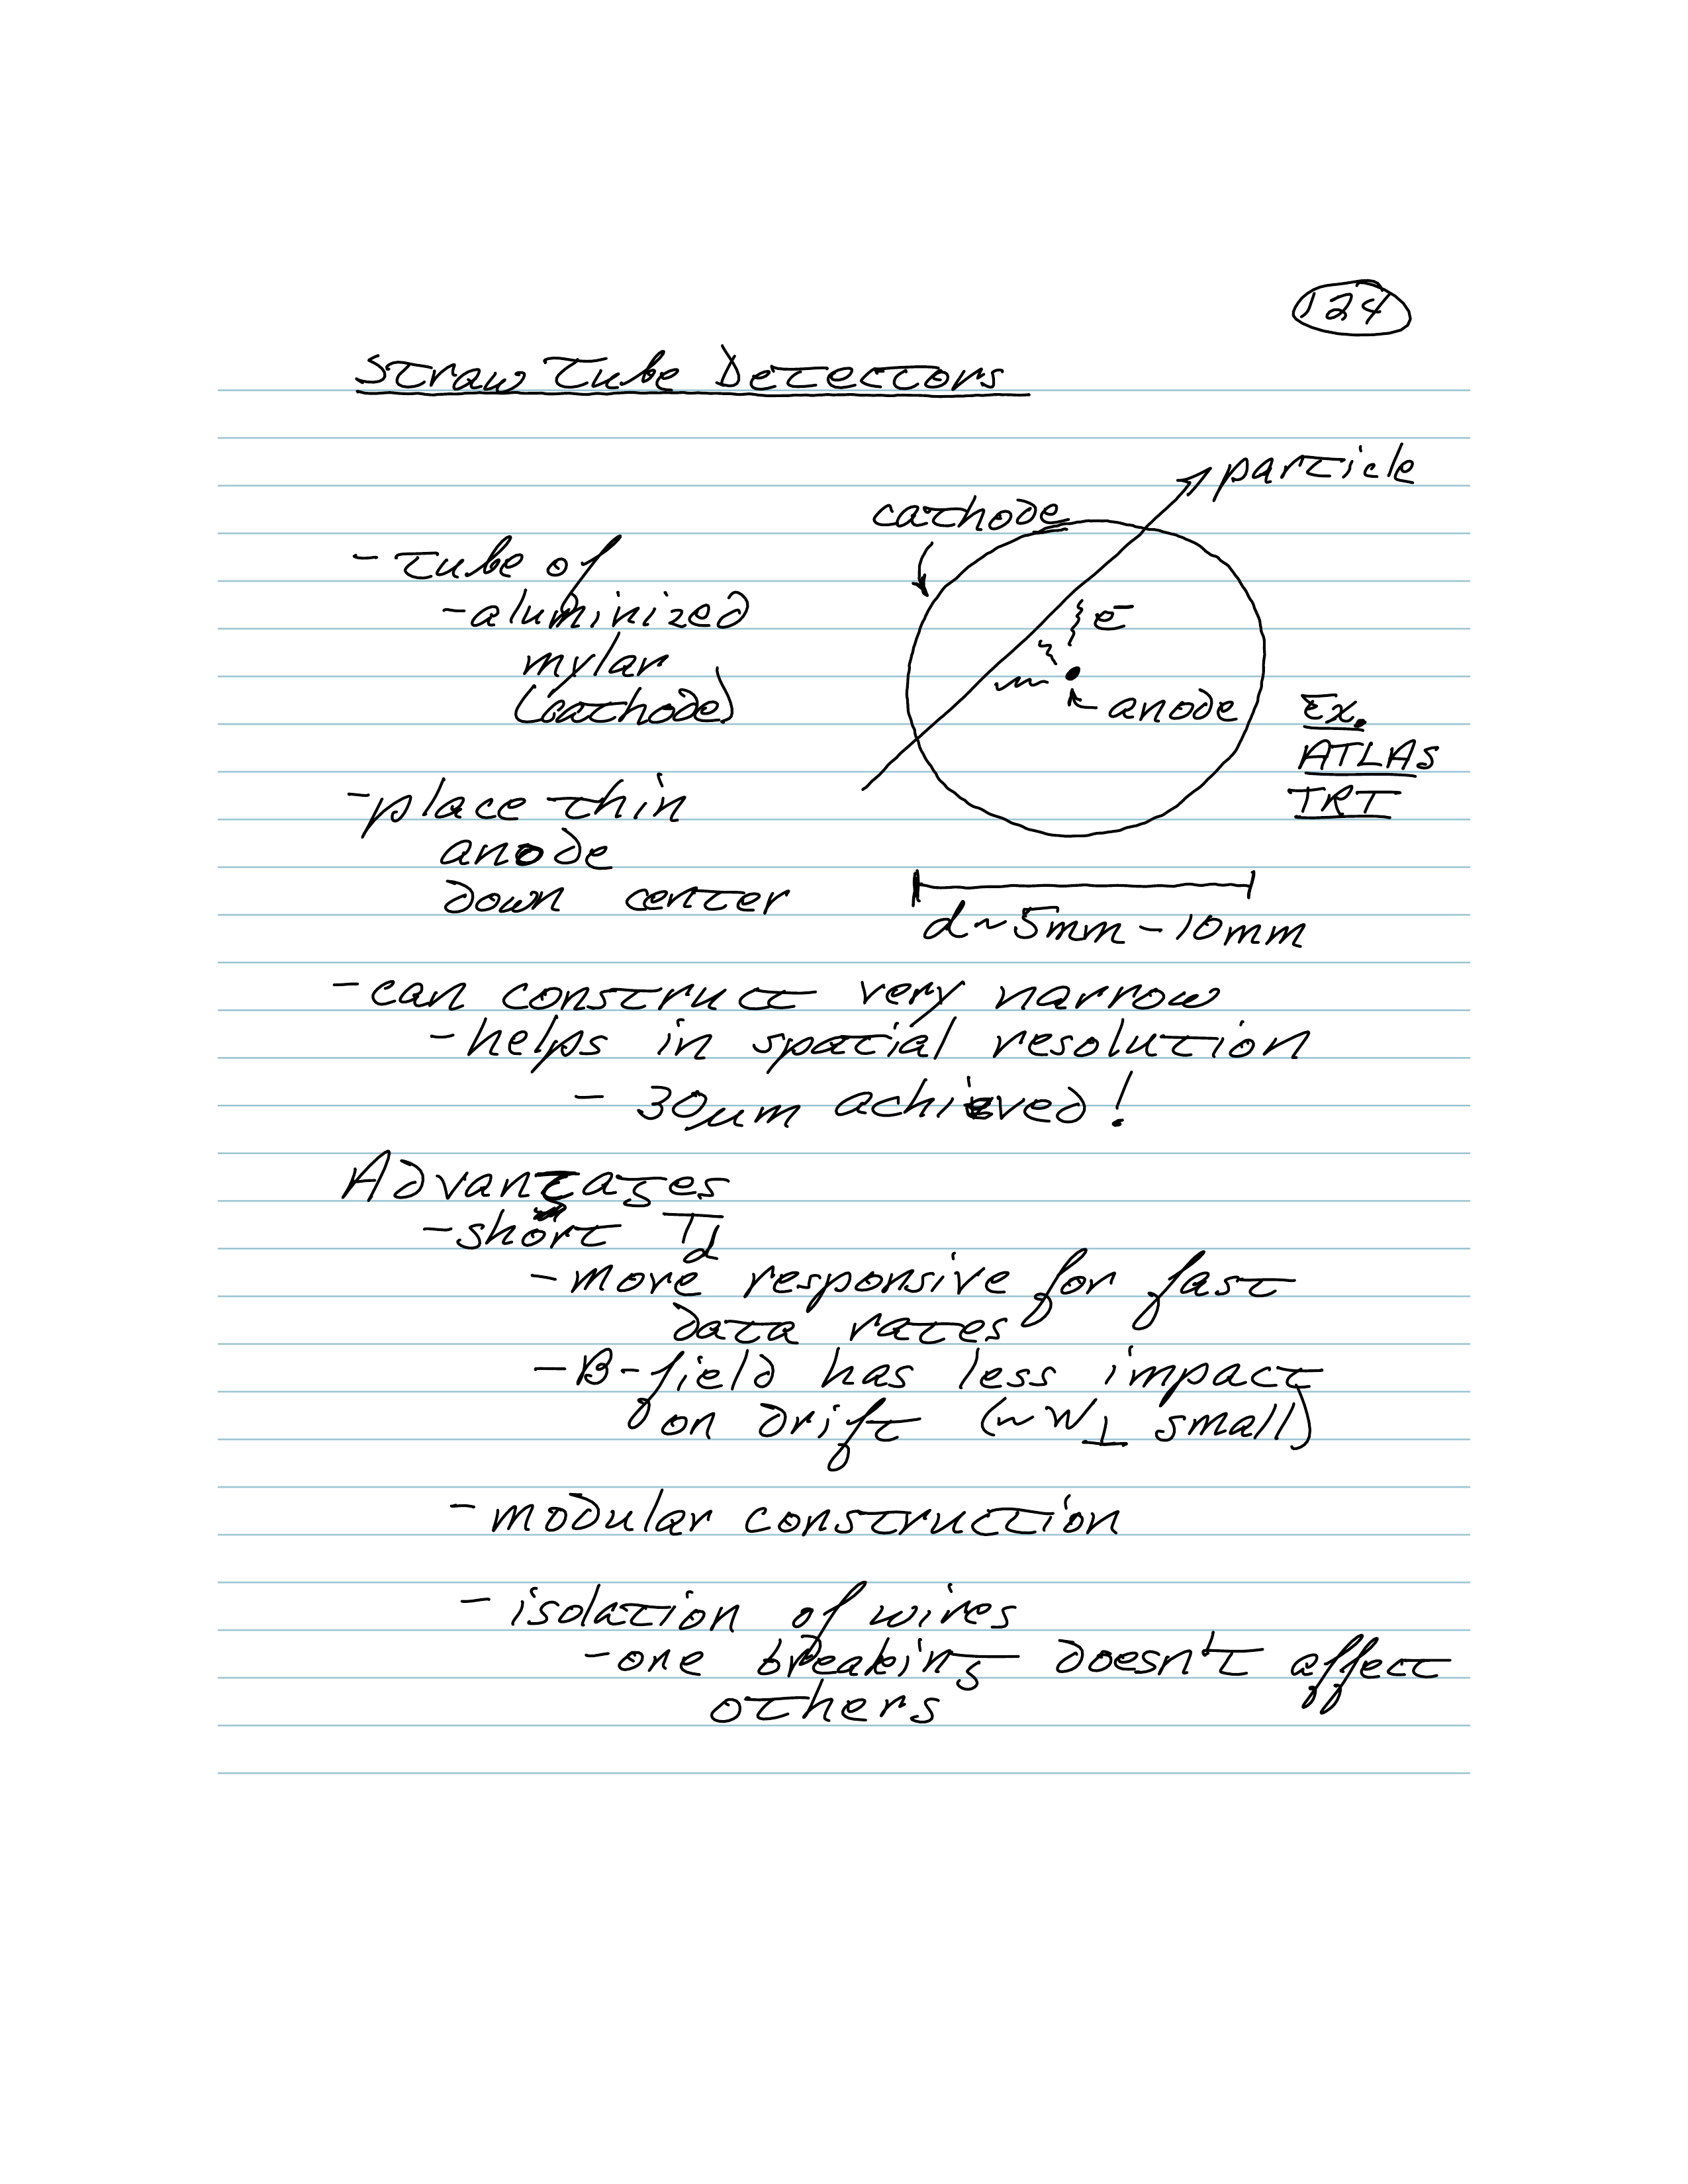 124
Straw Tube Detectors
particle
cathode
- tube of
- aluminized
mylar
(cathode)
e⁻
anode
Ex.
ATLAS
TRT
- place thin
anode
down center
d ~ 5mm - 10mm
- can construct very narrow
- helps in spatial resolution
- 30μm achieved!
Advantages
- short T_d
- more responsive for fast
data rates
- B-field has less impact
on drift (~ W⊥ small)
- modular construction
- isolation of wires
- one breaking doesn't affect
others